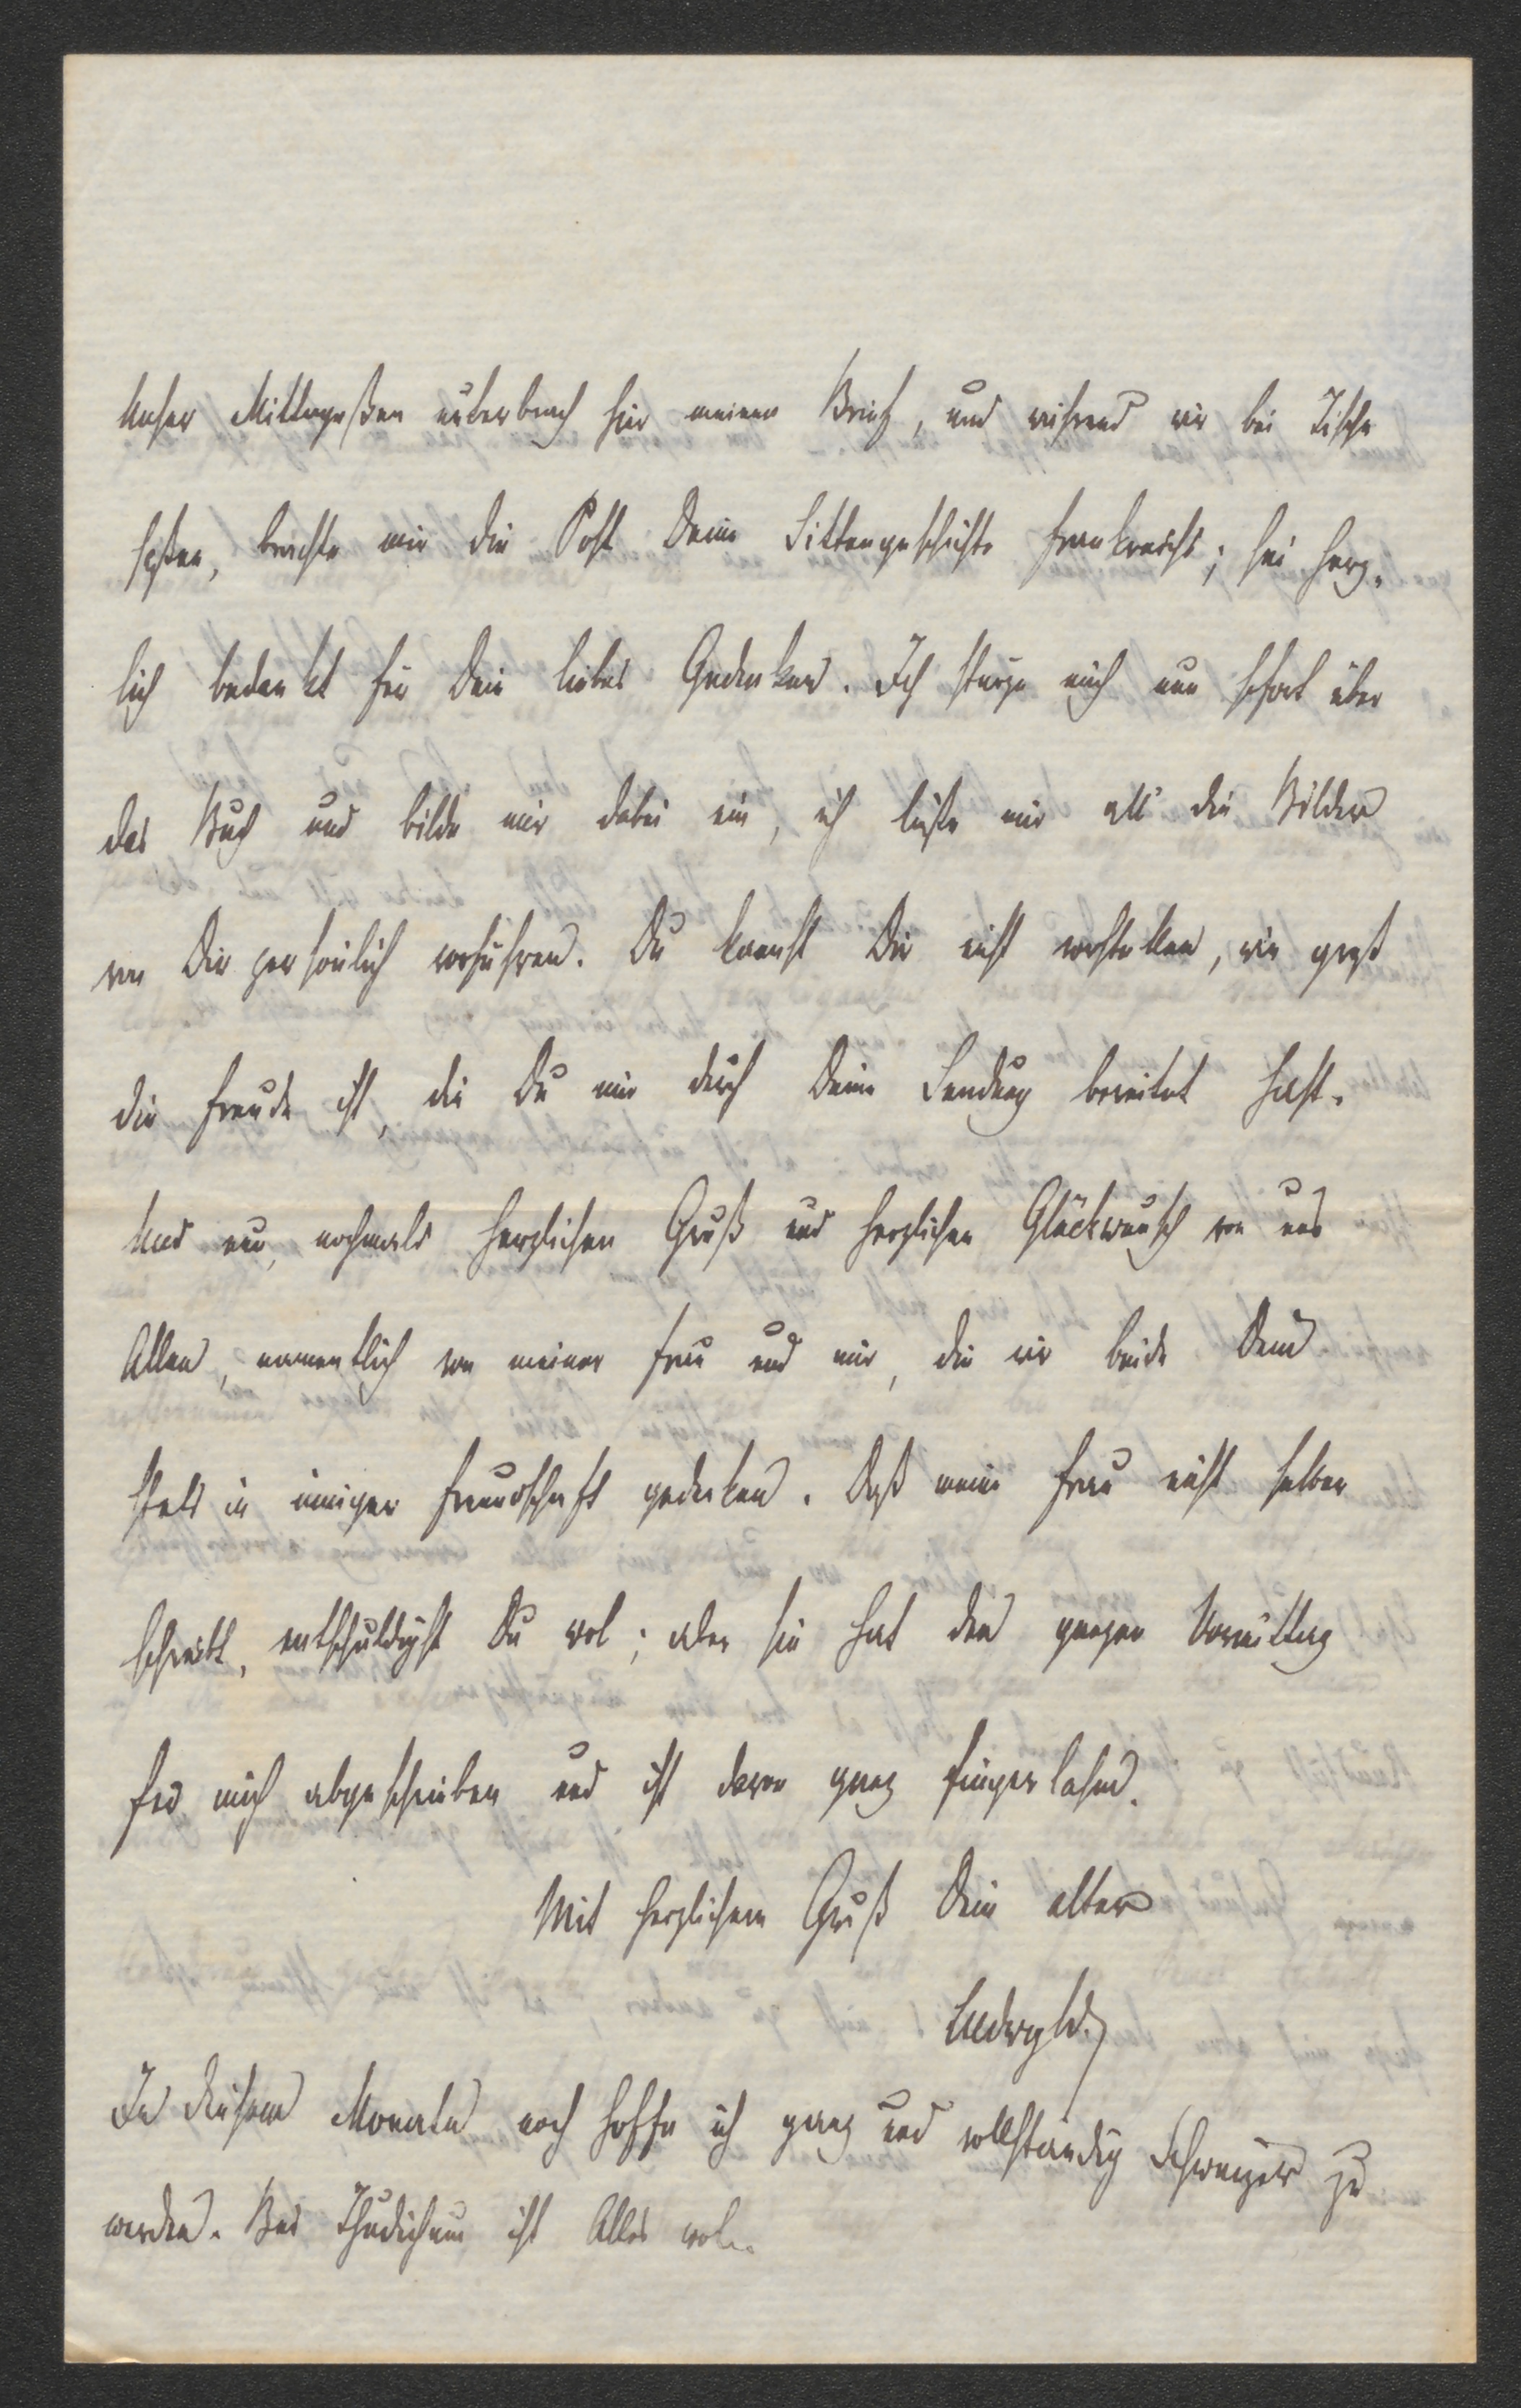 Unser Mittagessen unterbrach hier meinen Brief, und während wir bei Tische
saßen, brachte mir die Post Deine Sittengeschichte Frankreichs; sei herz-
lich bedankt für Dein liebes Gedenken. Ich stürze mich nun sofort über
das Buch und bilde mir dabei ein, ich ließe mir all' die Bilder
von Dir persönlich vorführen. Du kannst Dir nicht vorstellen, wie groß
die Freude ist, die Du mir durch Deine Sendung bereitet hast.
Und nun, nochmals herzlichen Gruß und herzlichen Glückwunsch von uns
Allen, namentlich von meiner Frau und mir, die wir beide Dein
stets in inniger Freundschaft gedenken. Daß meine Frau nicht selber
schreibt, entschuldigst Du wol; aber sie hat den ganzen Vormittag
für mich abgeschrieben und ist davon ganz fingerlahm.
Mit herzlichem Gruß Dein alter
Ludwig
In diesem Monate noch hoffe ich ganz und vollständig Schweizer zu
werden. Bei Thudichum ist Alles wol.